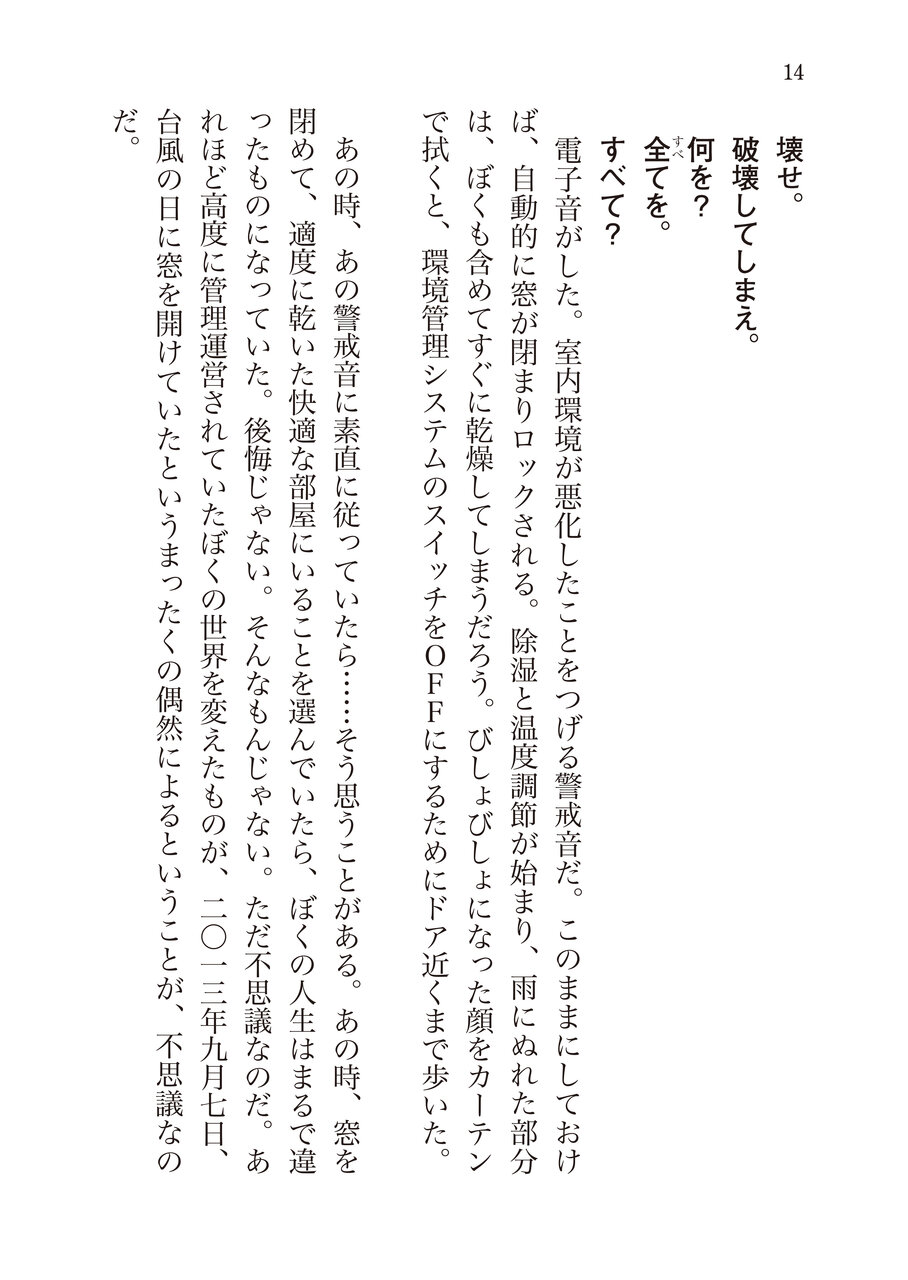 14
壊せ。
破壊してしまえ。
何を？
全てを。
すべ
すべて？
電子音がした。室内環境が悪化したことをつげる警戒音だ。このままにしておけ
ば、自動的に窓が閉まりロックされる。除湿と温度調節が始まり、雨にぬれた部分
は、ぼくも含めてすぐに乾燥してしまうだろう。びしょびしょになった顔をカーテン
で拭くと、環境管理システムのスイッチをOFFにするためにドア近くまで歩いた。
あの時、あの警戒音に素直に従っていたら……そう思うことがある。あの時、窓を
閉めて、適度に乾いた快適な部屋にいることを選んでいたら、ぼくの人生はまるで違
ったものになっていた。後悔じゃない。そんなもんじゃない。ただ不思議なのだ。あ
れほど高度に管理運営されていたぼくの世界を変えたものが、二〇一三年九月七日、
台風の日に窓を開けていたというまったくの偶然によるということが、不思議なの
だ。